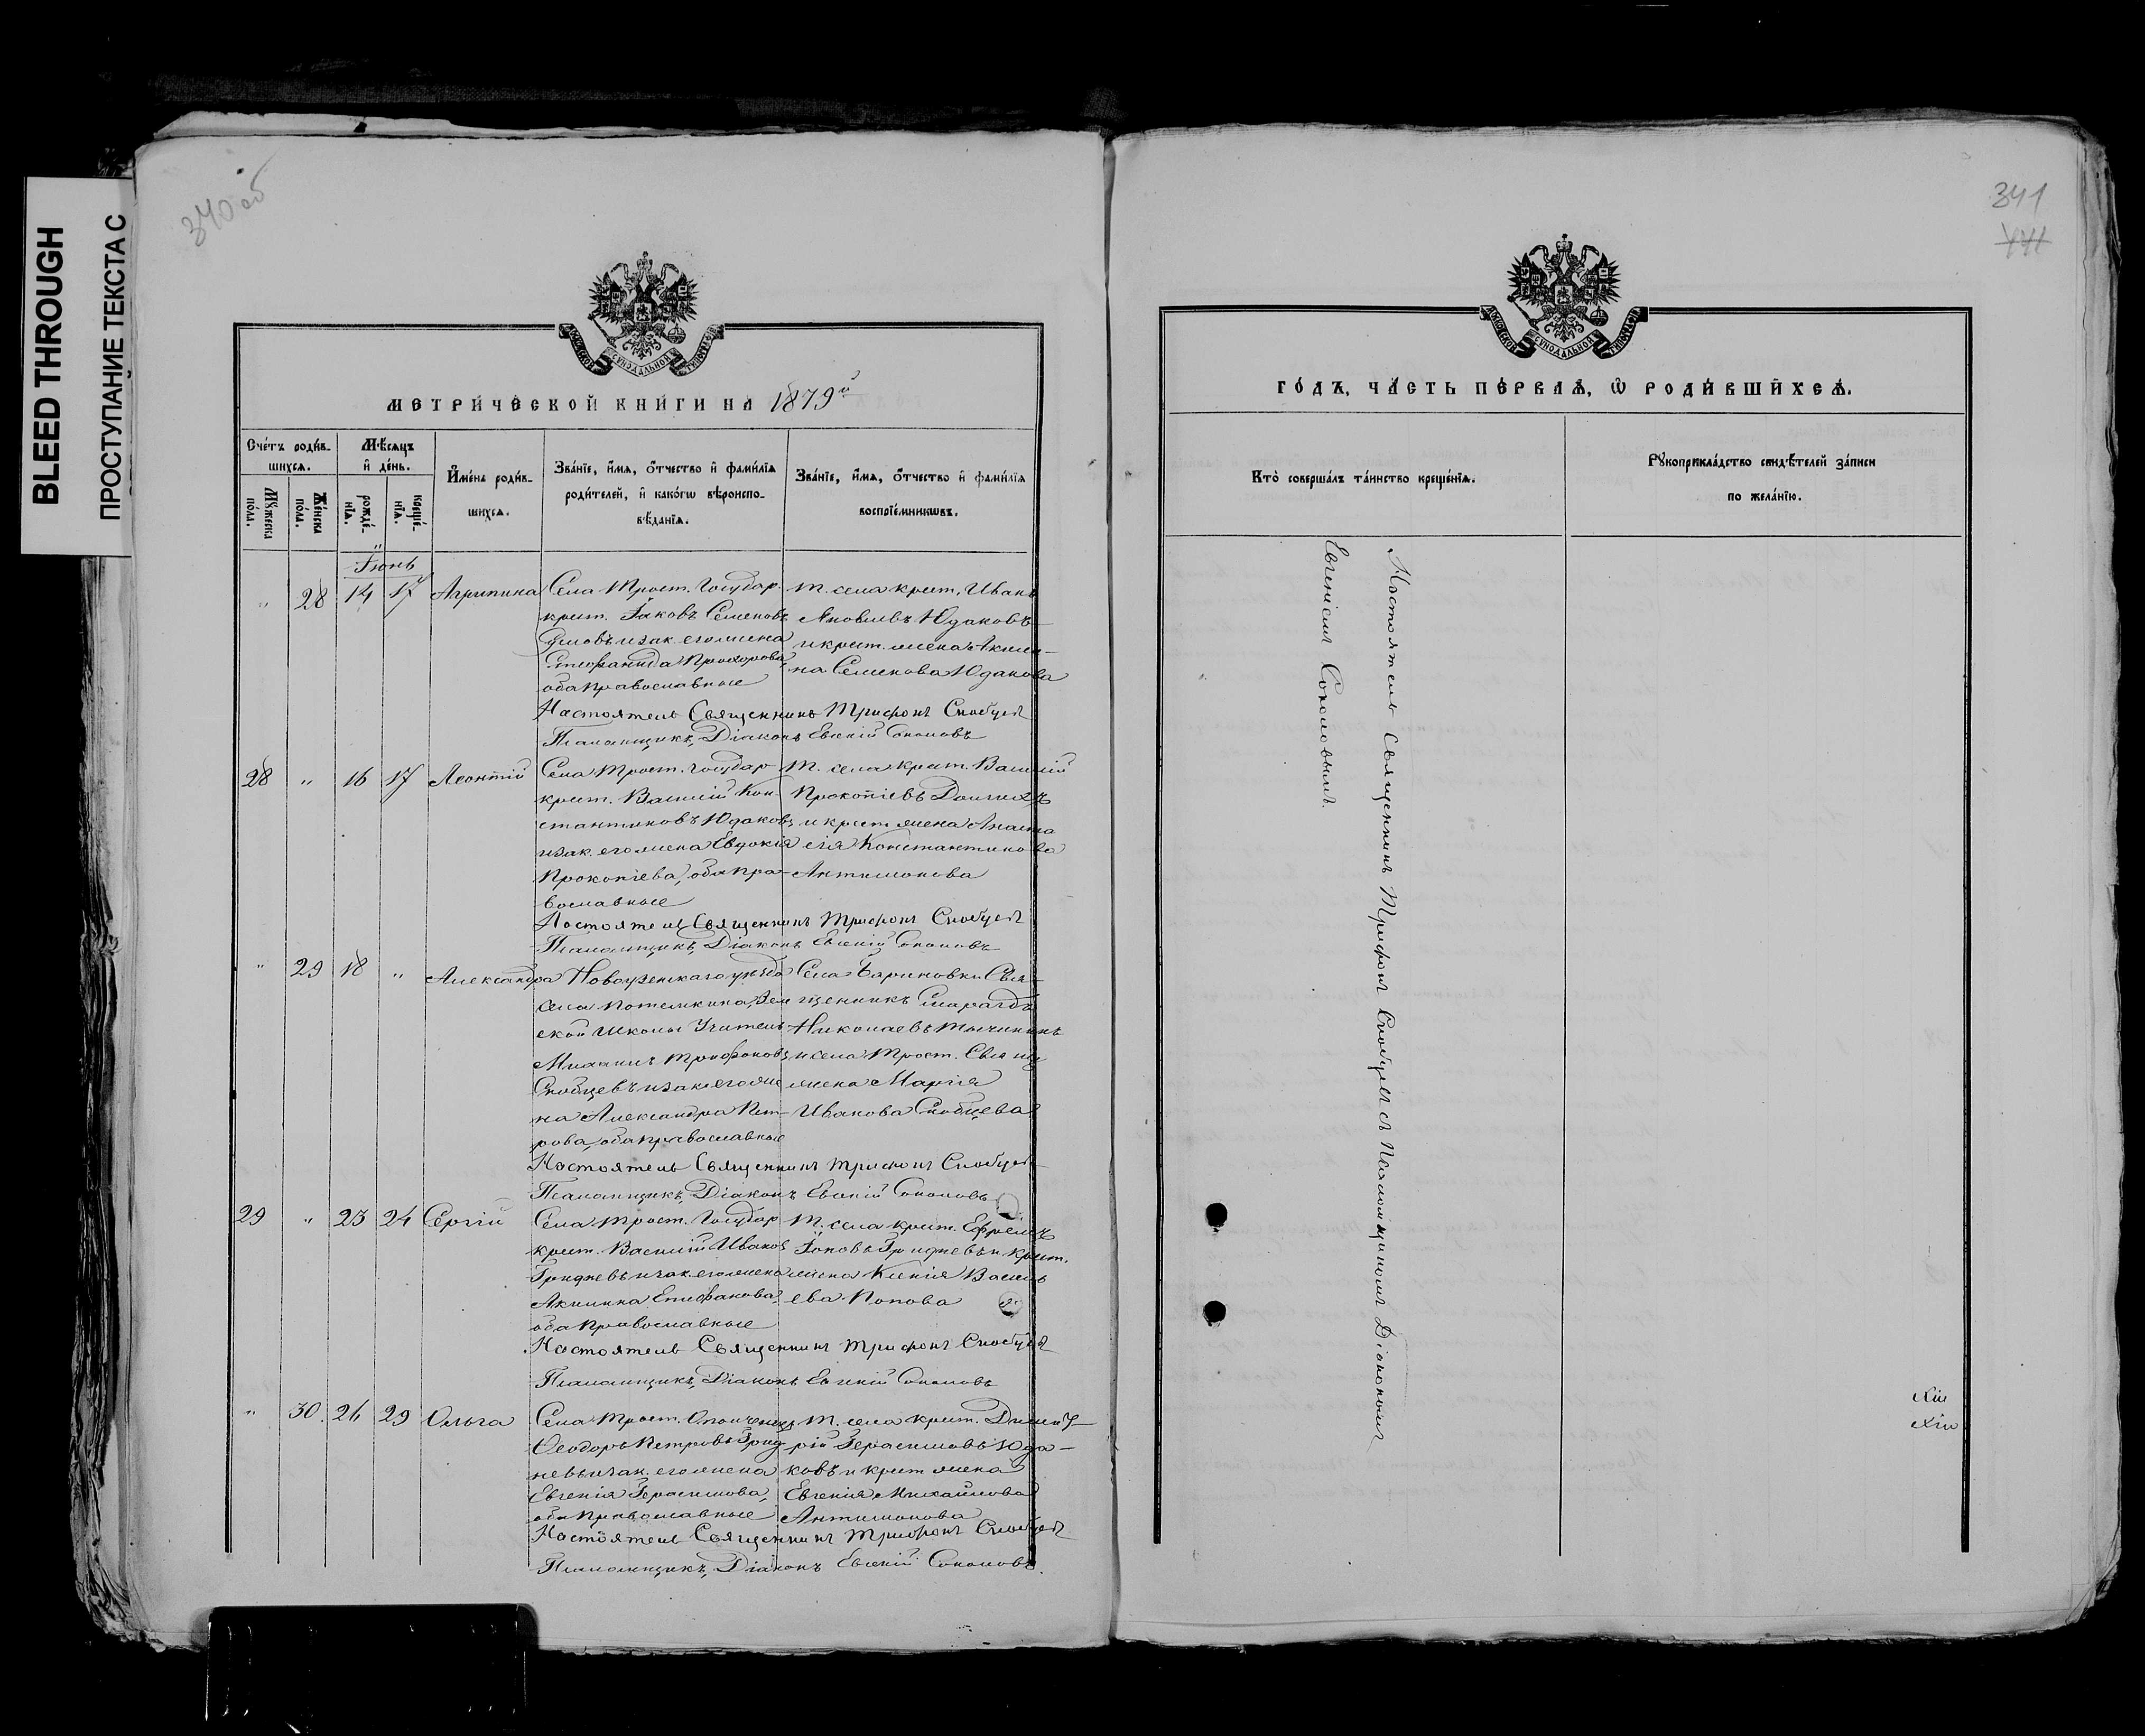 BLEED THROUGH
ПРОСТУПАНИЕ ТЕКСТА С
340 об
МЕТРИ́ЧЕСКОЙ КНИ́ГИ НА 1879й
Сче́тъ роди́в-
шихся.
Мѣ́сяцъ
и҆ де́нь.
Мꙋ́жеска
по́ла.
Же́нска
по́ла.
рожде́-
нїѧ.
креще́-
нїѧ.
И҆мена̀ роди́в-
шихсѧ.
Зва́нїе, и҆́мѧ, ѻ҆́тчество и҆ фами́лїѧ
роди́телей, и҆ како́гѡ вѣроиспо-
вѣ́данїѧ.
Зва́нїе, и҆́мѧ, ѻ҆́тчество и҆ фами́лїѧ
воспрїе́мникѡвъ.
Іюнь
" 28 14 17 Агрипина Села Трост. Государ.
крест. Іаковъ Семеновъ
и зак. его жена
Стефанида Прохорова,
оба православные
Т. села крест. Иванъ
Яковлевъ Юдаковъ
и крест. жена Акили-
на Семенова Юдакова
Настоятель Священникъ Трифонъ Скобцевъ
Псаломщикъ, Діаконъ Евгеній Соколовъ
28 " 16 17 Леонтій Села Трост. Государ
крест. Василій Кон-
стантиновъ Юдаковъ
и зак. его жена Евдокія
Прокопіева, оба пра-
вославные
Т. села крест. Василій
Прокопіевъ Долгихъ
и крест. жена Анаста
сія Константинова
Антимонова
Настоятель Священникъ Трифонъ Скобцевъ
Псаломщикъ, Діаконъ Евгеній Соколовъ
" 29 18 " Александра Новоузенскаго уѣзда
села Потемкина, Зем
ской школы Учитель
Михаилъ Трифоновъ
Скобцевъ и зак. его же
на Александра Пет-
рова, оба православные
Села Бариновки Свя-
щенникъ Смарагдъ
Николаевъ Тычинкинъ
и села Трост. Свящ
жена Марія
Иванова Скобцева
Настоятель Священникъ Трифонъ Скобцевъ
Псаломщикъ, Діаконъ Евгеній Соколовъ
29 " 23 24 Сергій Села Трост. Государ
крест. Василій Иванов
Гриднев и зак. его жена
Акилина Епифанова,
оба православные
Т. села крест. Ефремъ
Іоновъ Гридневъ и крест.
жена Ксенія Василь
ева Попова
Настоятель Священникъ Трифонъ Скобцевъ
Псаломщикъ, Діаконъ Евгеній Соколовъ
" 30 26 29 Ольга Села Трост.
Ѳеодоръ Петровъ Грид
невъ и зак. его жена
Евгенія Герасимова,
оба православные
Т. села крест. Димит-
рій Герасимовъ Юда-
ковъ и крест жена
Евгенія Михайлова
Антимонова
Настоятель Священникъ Трифонъ Скобцевъ
Псаломщикъ, Діаконъ Евгеній Соколовъ.
341
ГО́ДЪ, ЧА́СТЬ ПЕ́РВАѦ, Ѡ҆ РОДИ́ВШИХСѦ.
Кто̀ соверша́лъ та́инство креще́нїѧ.
Рꙋкоприкла́дство свидѣ́телей за́писи
по жела́нїю.
Настоятель Священникъ Трифонъ Скобцевъ съ Псаломщикомъ Діакономъ
Евгеніемъ Соколовымъ.